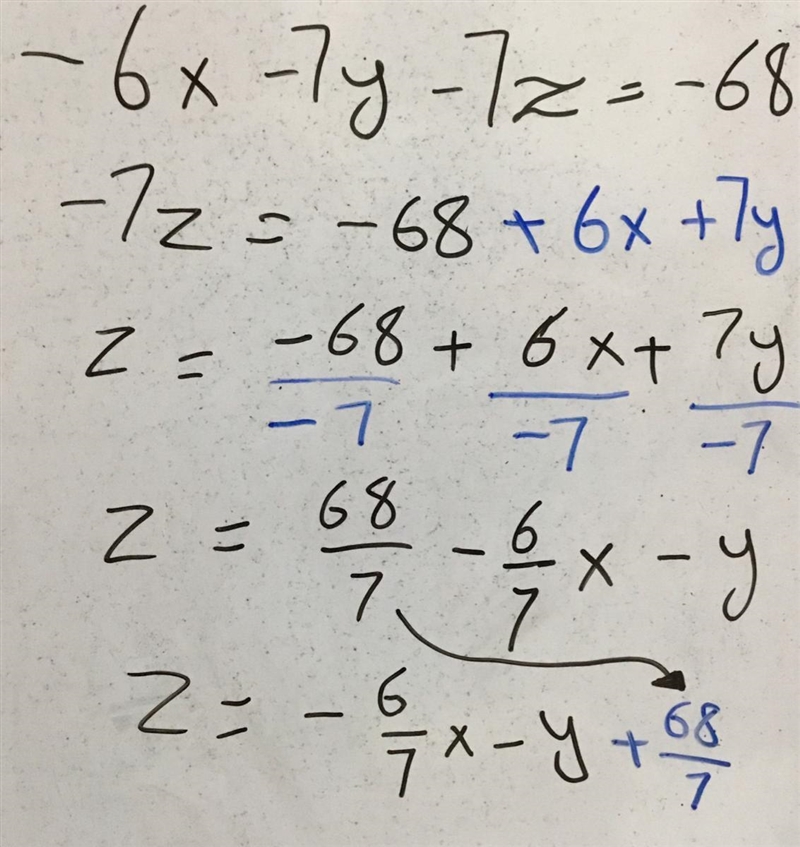 -6x -7y -7z = -68
-7z = -68 + 6x +7y
z = -68/-7 + 6x/-7 + 7y/-7
z = 68/7 - 6/7 x - y
z = - 6/7 x - y + 68/7